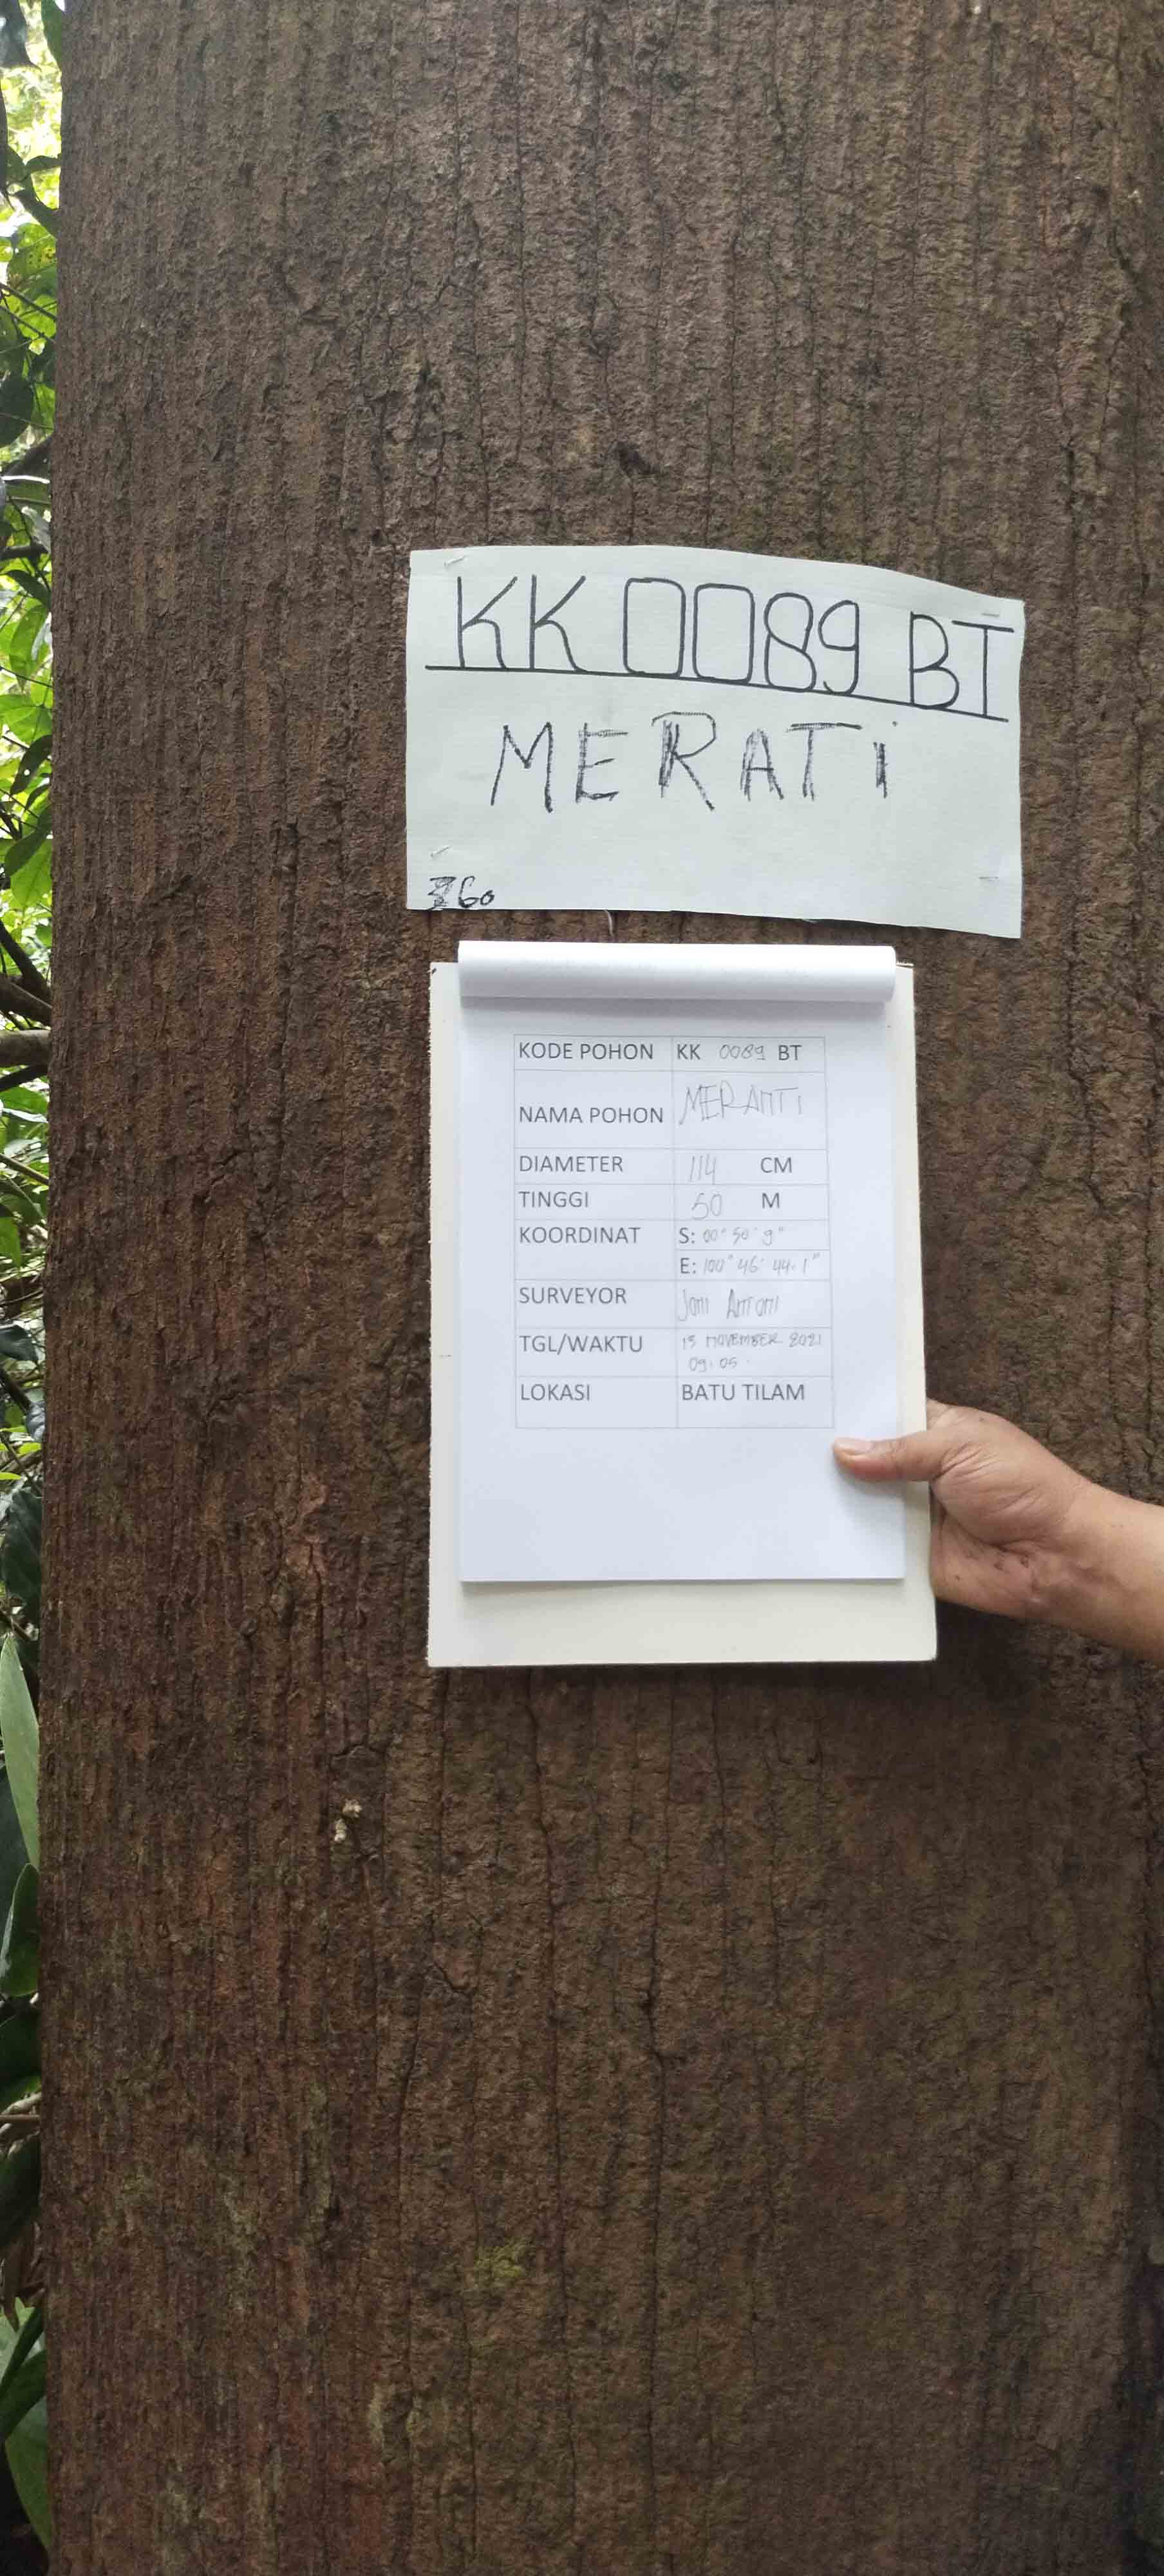 KK 0089 BT
MERATi
360
KODE POHON KK 0089 BT
NAMA POHON MERANTI
DIAMETER 114 CM
TINGGI 50 M
KOORDINAT S: 00° 50' 9"
E: 100° 46' 44.1"
SURVEYOR Joni Antoni
TGL/WAKTU 15 NOVEMBER 2021
09.05.
LOKASI BATU TILAM